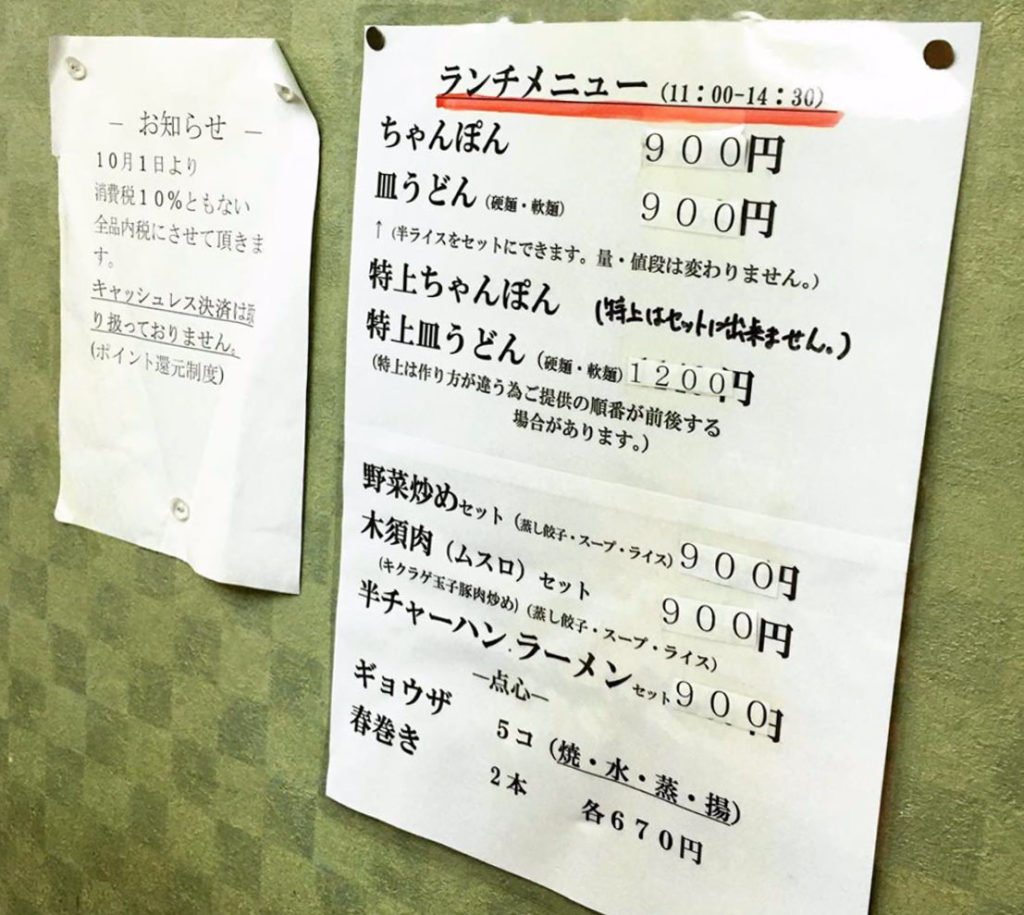 ― お知らせ ―
10月1日より
消費税10%ともない
全品内税にさせて頂きま
す。
キャッシュレス決済は取
り扱っておりません。
(ポイント還元制度)
ランチメニュー (11:00-14:30)
ちゃんぽん 900円
皿うどん (硬麺・軟麺) 900円
↑ (半ライスをセットにできます。量・値段は変わりません。)
特上ちゃんぽん (特上はセットに出来ません。)
特上皿うどん (硬麺・軟麺) 1200円
(特上は作り方が違う為ご提供の順番が前後する
場合があります。)
野菜炒めセット (蒸し餃子・スープ・ライス) 900円
木須肉 (ムスロ) セット 900円
(キクラゲ玉子豚肉炒め) (蒸し餃子・スープ・ライス)
半チャーハン.ラーメンセット 900円
―点心―
ギョウザ 5コ (焼・水・蒸・揚)
春巻き 2本 各670円